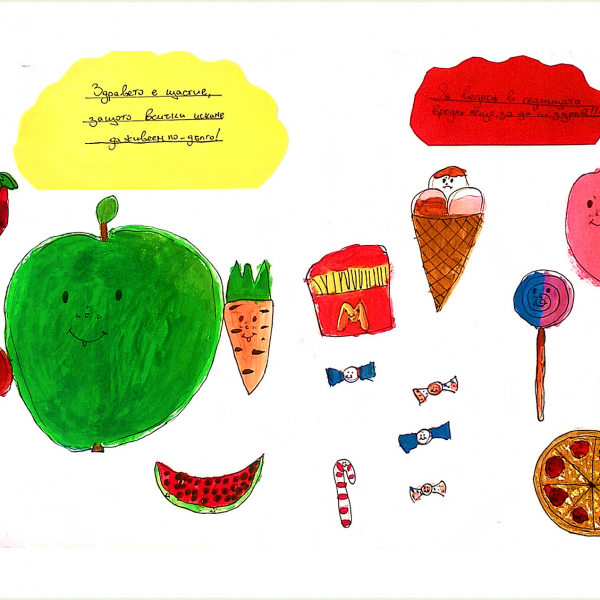 Здравето е щастие,
защото всички искаме
да живеем по-дълго!
в седмицата
вредно нещо за да си здрав!!!
M